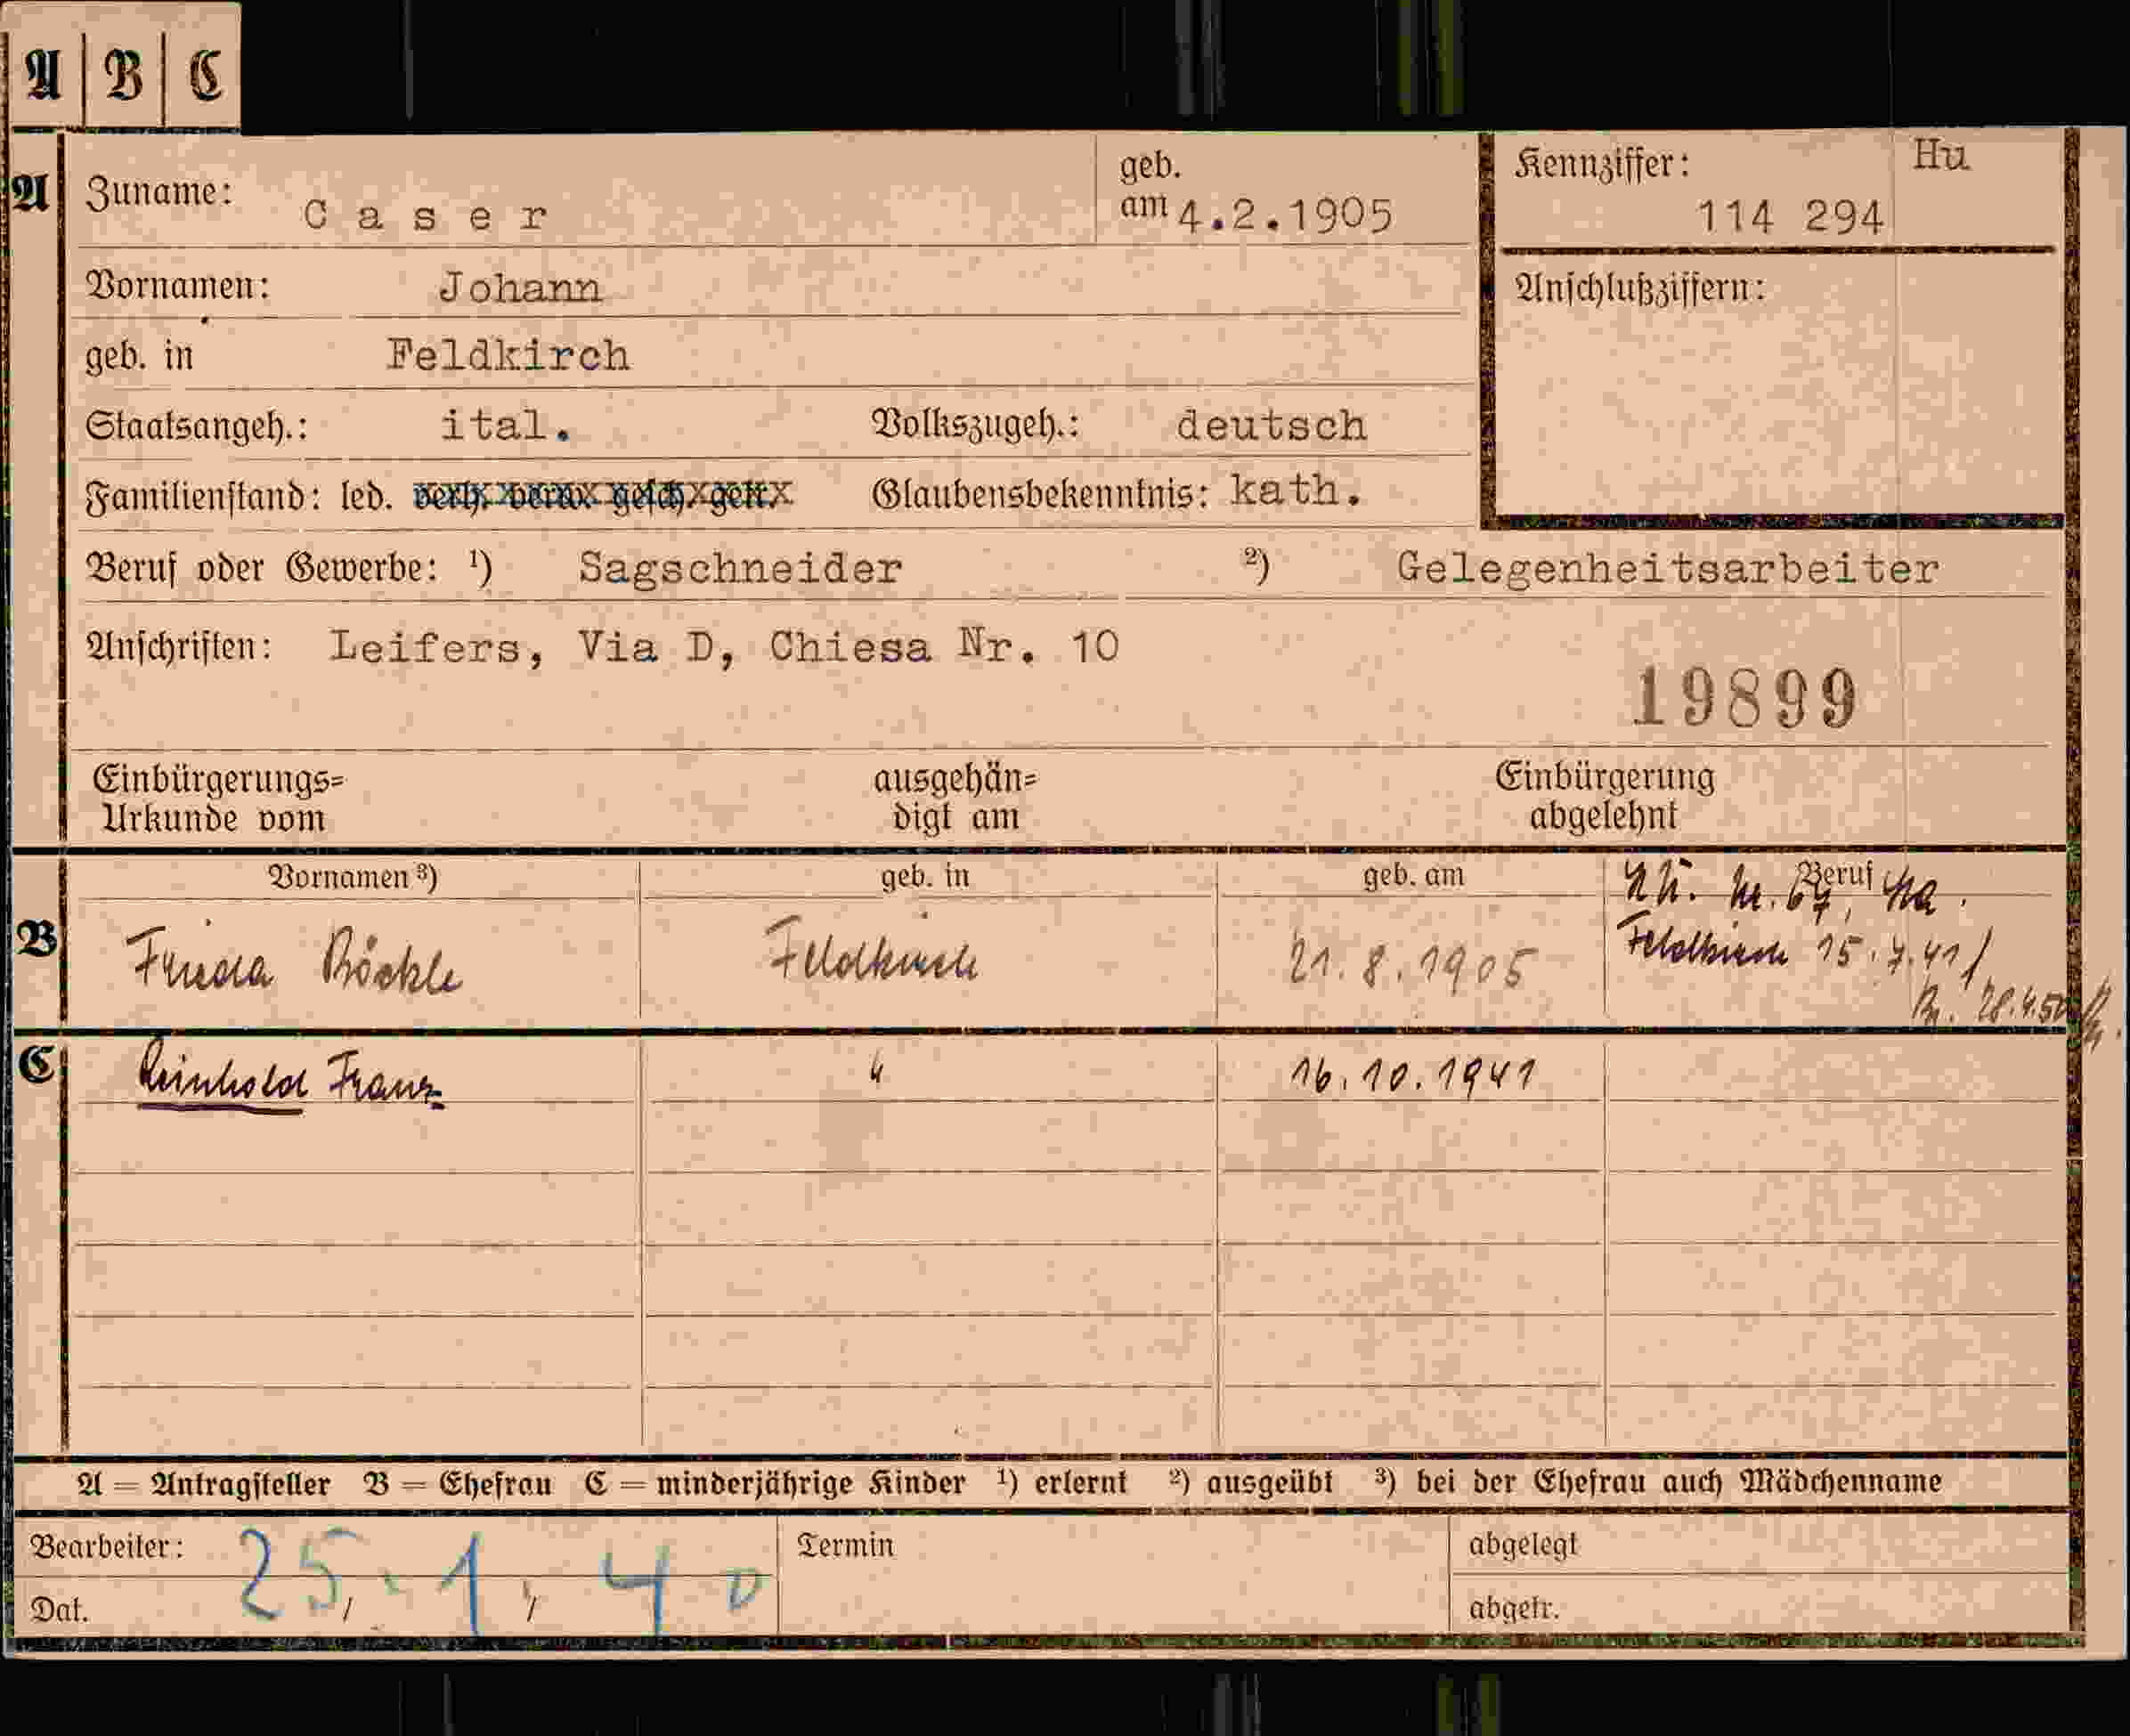 A | B | C
A Zuname: Caser geb. am 4.2.1905 Kennziffer: 114 294 Hu
Vornamen: Johann Anschlußziffern:
geb. in Feldkirch
Staatsangeh.: ital. Volkszugeh.: deutsch
Familienstand: led. verh. verw. gesch. getr. Glaubensbekenntnis: kath.
Beruf oder Gewerbe: ¹) Sagschneider ²) Gelegenheitsarbeiter
Anschriften: Leifers, Via D, Chiesa Nr. 10
19899
Einbürgerungs= ausgehän= Einbürgerung
Urkunde vom digt am abgelehnt
Vornamen ³) geb. in geb. am Beruf
Nr. 67,
B Frieda Böckle Feldkirch 21.8.1905 Feldkirch 15.7.41
28.4.50
C Reinhold Franz " 16.10.1941
A = Antragsteller B = Ehefrau C = minderjährige Kinder ¹) erlernt ²) ausgeübt ³) bei der Ehefrau auch Mädchenname
Bearbeiter: Termin abgelegt
Dat. 25.1.40 abgetr.